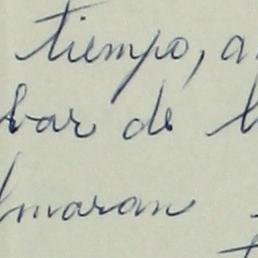 tiempo, a
bar de l
maran